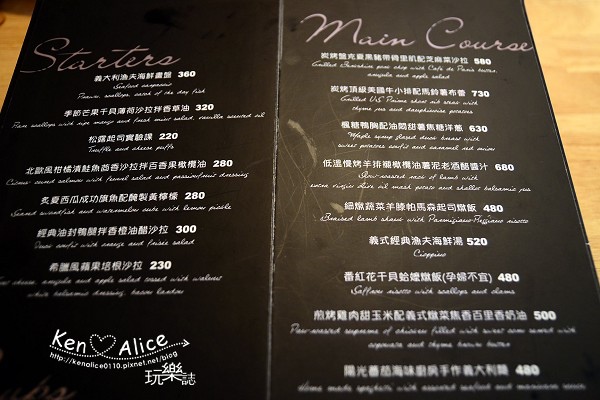 Starters
義大利漁夫海鮮畫盤 360
Seafood composure
Prawn, scallops, catch of the day fish
季節芒果千貝薄荷沙拉拌香草油 320
Pan scallops with ripe mango and fresh mint salad, vanilla scented oil
松露起司實驗課 220
Truffle and cheese puffs
北歐風柑橘漬鮭魚茴香沙拉拌百香果橄欖油 280
Citrus-cured salmon with fennel salad and passionfruit dressing
炙夏西瓜成功旗魚配醃製黃檸檬 280
Seared swordfish and watermelon cube with lemon pickle
經典油封鴨腿拌香橙油醋沙拉 300
Duck confit with orange and frisée salad
希臘風蘋果培根沙拉 230
cheese, arugula and apple salad tossed with walnut
white balsamic dressing, bacon lardon
Ken Alice
http://kenalice0110.pixnet.net/blog
玩樂誌
Main Course
炭烤盤克夏黑豬帶骨里肌配芝麻菜沙拉 580
Grilled Berkshire pork chop with Café de Paris butter,
arugula and apple salad
炭烤頂級美國牛小排配馬鈴薯布魯 730
Grilled US Prime short rib steak with
thyme jus and dauphinoise potatoes
楓糖鴨胸配油悶甜薯焦糖洋蔥 630
Maple syrup glazed duck breast with
sweet potatoes confit and caramel red onion
低溫慢烤羊排襯橄欖油薯泥老酒醋醬汁 680
Slow-roasted rack of lamb with
extra virgin olive oil mash potato and shallot balsamic jus
細燉蔬菜羊膝帕馬森起司燉飯 480
Braised lamb shank with Parmigiano-Reggiano risotto
義式經典漁夫海鮮湯 520
Cioppino
番紅花千貝蛤蠣燉飯(孕婦不宜) 480
Saffron risotto with scallops and clams
煎烤雞肉甜玉米配義式燉菜焦香百里香奶油 500
Pan-roasted supreme of chicken filled with sweet corn served with
caponata and thyme brown butter
陽光蕃茄海味廚房手作義大利麵 480
Home made spaghetti with assorted seafood and marinara sauce